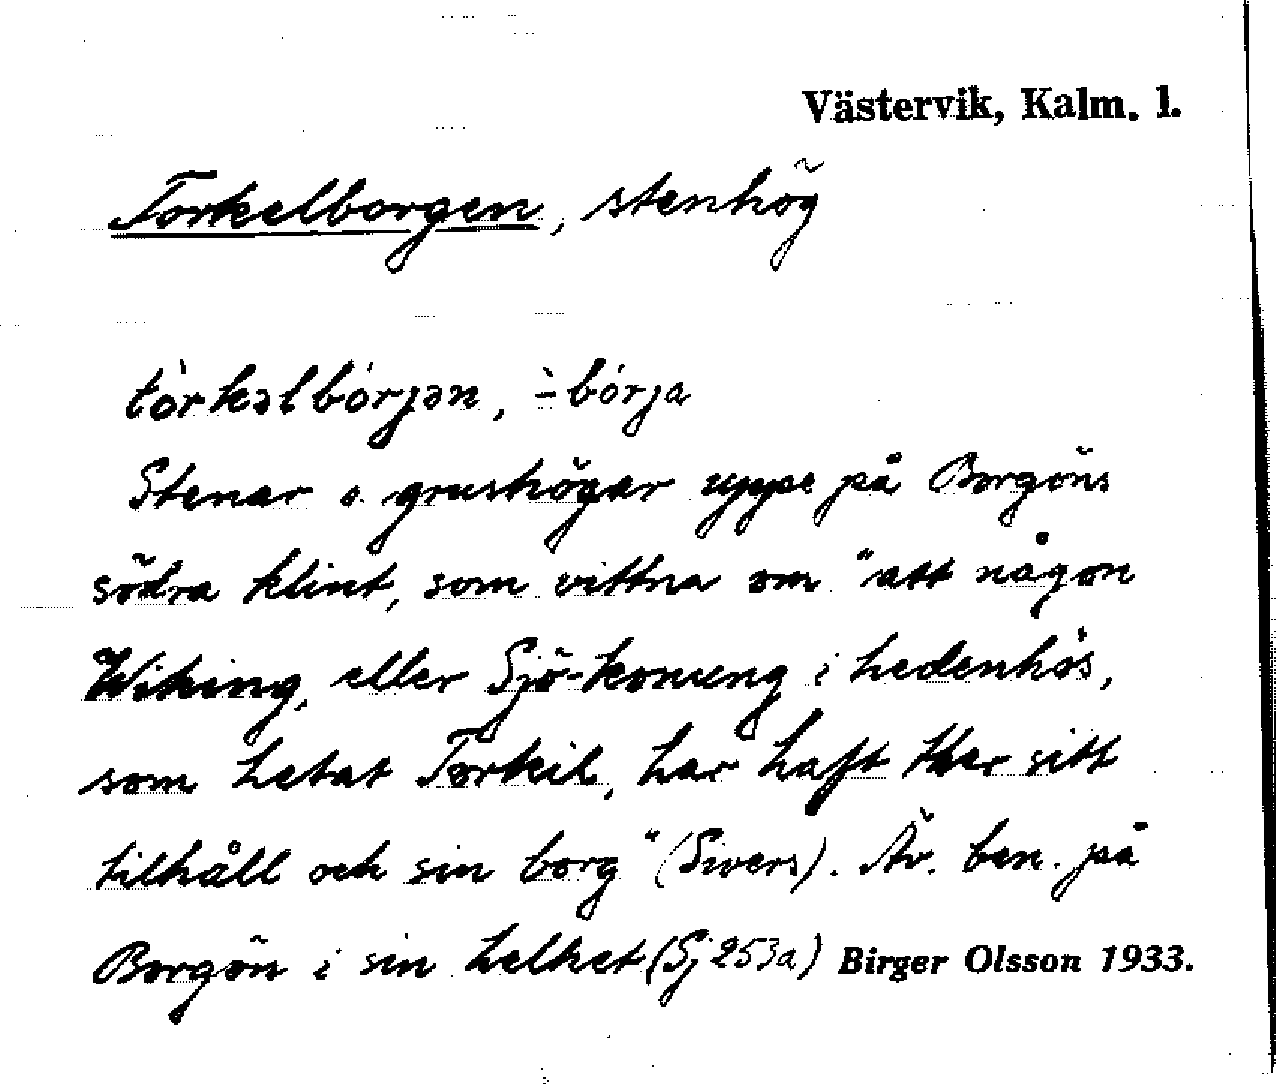 Västervik, Kalm. l.
Torkelborgen, stenhög
tòrkəlbórjən, ̀-bórja
Stenar o. grushögar uppe på Borgöns
södra klint, som vittna om "att någon
Wiking, eller Sjö-konung i hedenhös,
som hetat Torkil, har haft ther sitt
tilhåll och sin borg" (Sivers). Äv. ben. på
Borgön i sin helhet (Sj 253a) Birger Olsson 1933.